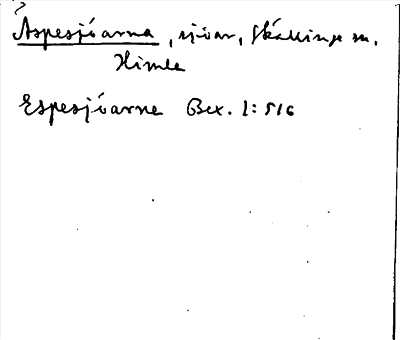 Äspesjöarna, sjöar, Skällinge sn,
Himle
Espesjöarne Bex. 1:516